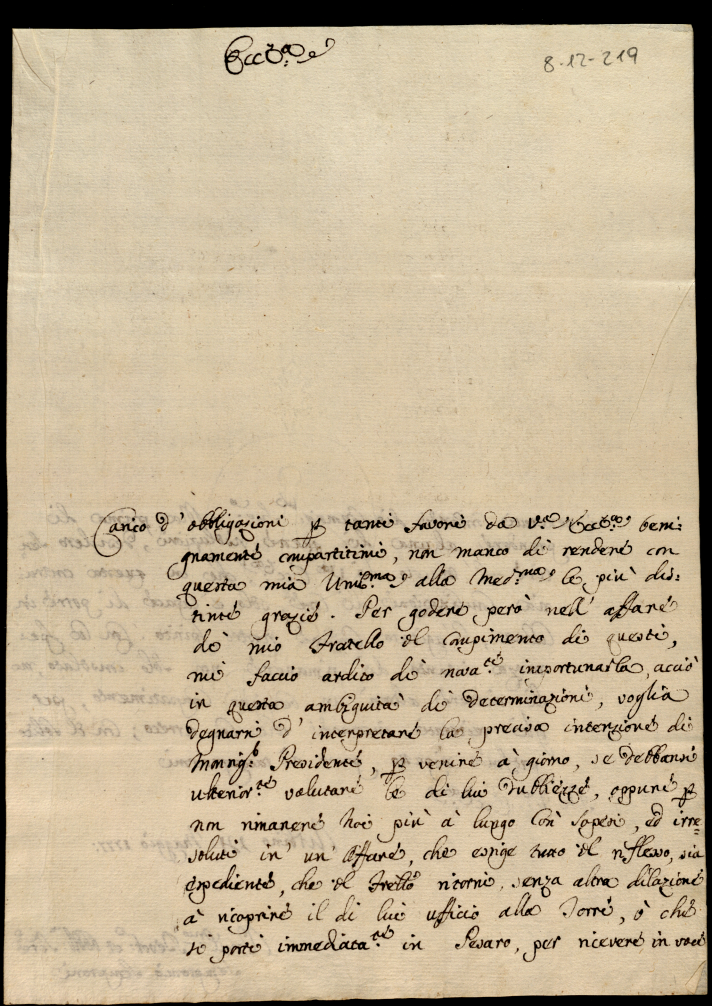 Eccza
8-12-219
Carico d'obbligazioni p tanti favori da V.a Eccza beni:
gnamente compartitimi, non manco di rendere con
questa mia Umil.ma alla Med.ma le più dis:
tinte grazie. Per godere però nell'affare
di mio Fratello il compimento di questi,
mi faccio ardito di nuova.te importunarla, acciò
in questa ambiguità di determinazioni, voglia
degnarsi d'interpretare la precisa intenzione di
Monsig.r Presidente, p venire à giorno, se debbansi
ulterior.te valutare le di lui dubbiezze, oppure p
non rimanere noi più à lungo così sospesi, ed irre=
soluti in un'affare, che esige tutto il riflesso, sia
espediente, che il Fratello ritorni senza altra dilazione
à ricoprire il di lui ufficio alla Torre, ò che
si porti immediata.te in Pesaro, per ricevere in voce